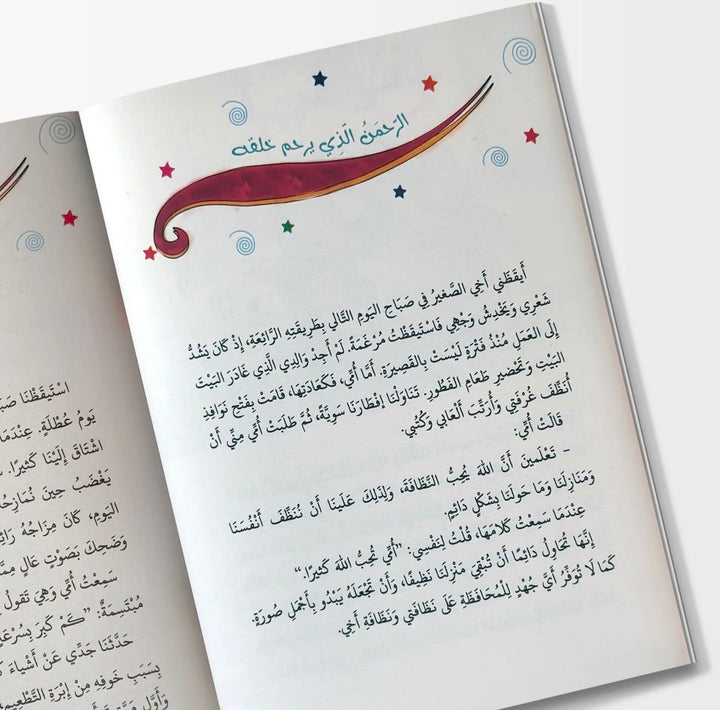 الرَّحمَنُ الَّذِي يرحم خلقه
أَيقَظَني أَخِي الصَّغيرُ فِي صَبَاحِ اليَومِ التَّالِي بِطَرِيقَتِهِ الرَّائِعَةِ، إِذْ كَانَ يَشُدُّ
شَعْرِي وَيَخْدِشُ وَجْهِي فَاسْتَيقَظْتُ مُرْغَمَةً. لَمْ أَجِدْ وَالِدِي الَّذِي غَادَرَ البَيْتَ
إِلَى العَمَلِ مُنْذُ فَتْرَةٍ لَيْسَتْ بِالقَصِيرَةِ. أَمَّا أُمِّي، فَكَعَادَتِهَا، قَامَتْ بِفَتْحِ نَوَافِذِ
البَيْتِ وَتَحْضِيرِ طَعَامِ الفَطُورِ. تَنَاوَلْنَا إِفْطَارَنَا سَوِيَّةً، ثُمَّ طَلَبَتْ أُمِّي مِنِّي أَنْ
أُنَظِّفَ غُرْفَتِي وَأُرَتِّبَ أَلْعَابِي وَكُتُبِي.
قَالَتْ أُمِّي:
– تَعْلَمينَ أَنَّ اللهَ يُحِبُّ النَّظَافَةَ، وَلِذَلِكَ عَلَينَا أَنْ نُنَظِّفَ أَنْفُسَنَا
وَمَنَازِلَنَا وَمَا حَولَنَا بِشَكْلٍ دَائِمٍ.
عِنْدَمَا سَمِعْتُ كَلَامَهَا، قُلْتُ لِنَفْسِي: ”أُمِّي تُحِبُّ اللهَ كَثيرًا.“
إِنَّهَا تُحَاوِلُ دَائِمًا أَنْ تُبْقِيَ مَنْزِلَنَا نَظِيفًا، وَأَنْ تَجْعَلَهُ يَبْدُو بِأَجْمَلِ صُورَةٍ.
كَمَا لَا تُوَفِّرُ أَيَّ جُهْدٍ لِلْمُحَافَظَةِ عَلَى نَظَافَتِي وَنَظَافَةِ أَخِي.
اسْتَيقَظْنَا
يَومُ عُطْلَةٍ. عِنْدَمَا
اشْتَاقَ إِلَيْنَا كَثيرًا.
يَغْضَبُ حِينَ نُمَازِحُ
اليَومِ، كَانَ مِزَاجُهُ
وَضَحِكَ بِصَوْتٍ عَالٍ
سَمِعْتُ أُمِّي وَهِيَ تَقُولُ
مُبْتَسِمَةً: ”كَمْ كَبِرَ
حَدَّثَنَا جَدِّي عَنْ أَشْيَاءَ
بِسَبَبِ خَوفِهِ مِنْ إِبْرَةِ التَّطْعِيمِ
وَأَوَّلِ